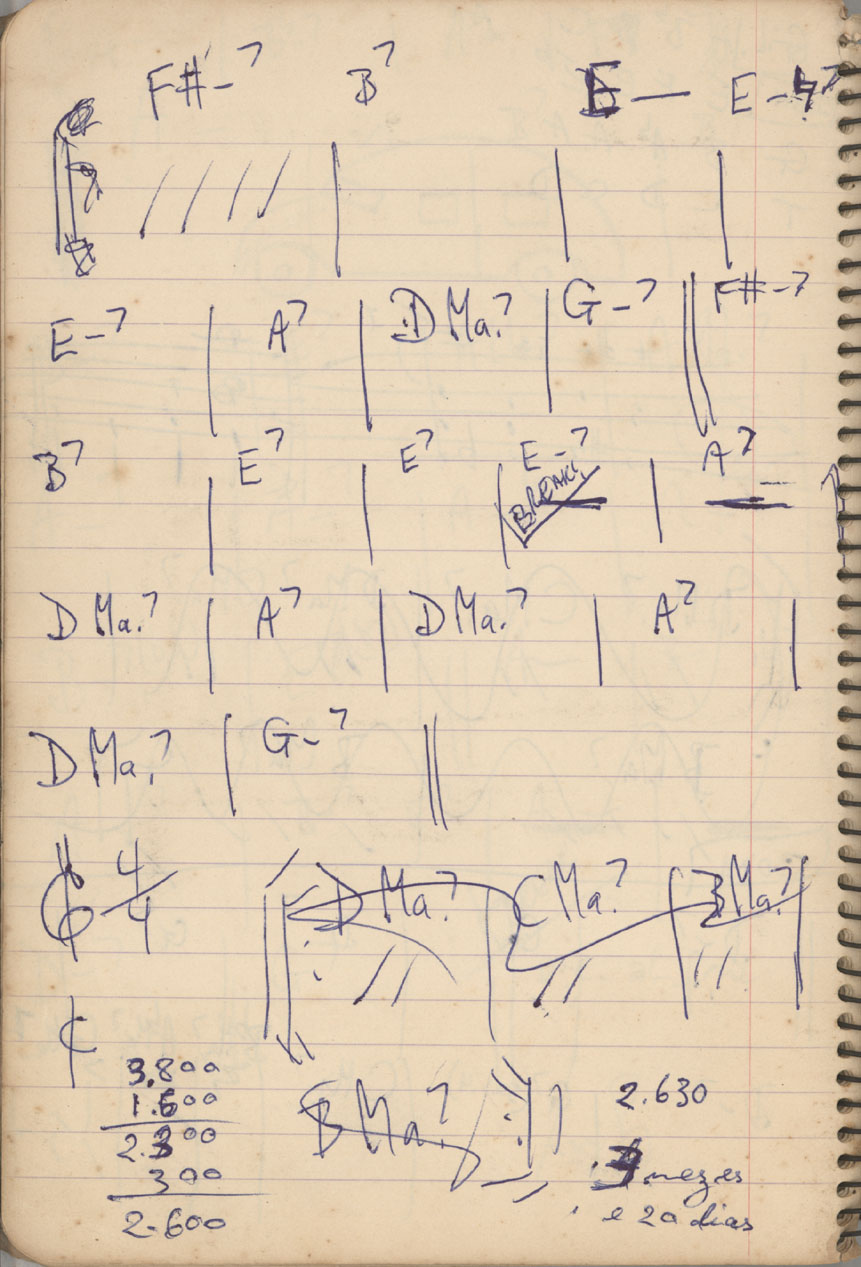 F#-7 B7 E— E-7
E-7 A7 D Ma.7 G-7 F#-7
B7 E7 E7 E-7 A7
BREAK
D Ma.7 A7 D Ma.7 A7
D Ma.7 G-7
4/4 D Ma.7 C Ma.7 B Ma.7
B Ma.7
3.800
1.600
2.300
300
2.600
2.630
3 mezes
e 20 dias